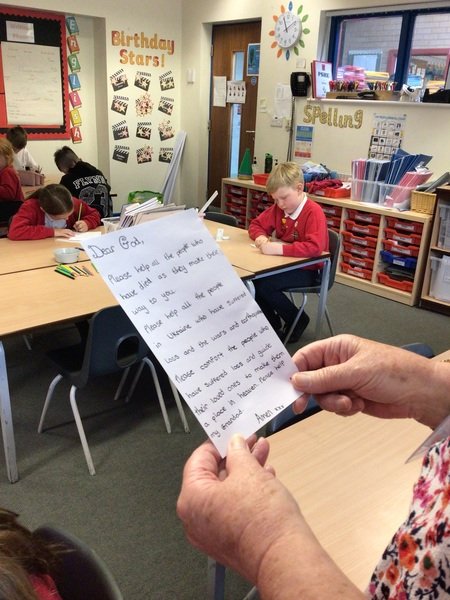 Birthday
Stars!
PSHE
Spelling
Dear God,
Please help all the people who
have died as they make their
way to you.
Please help all the people
in Ukraine who have suffered
loss and the wars and earthquakes
Please comfort the people who
have suffered loss and guide
their loved ones to make them
a place in heaven. Please help
my Grandad.
Amen xxx